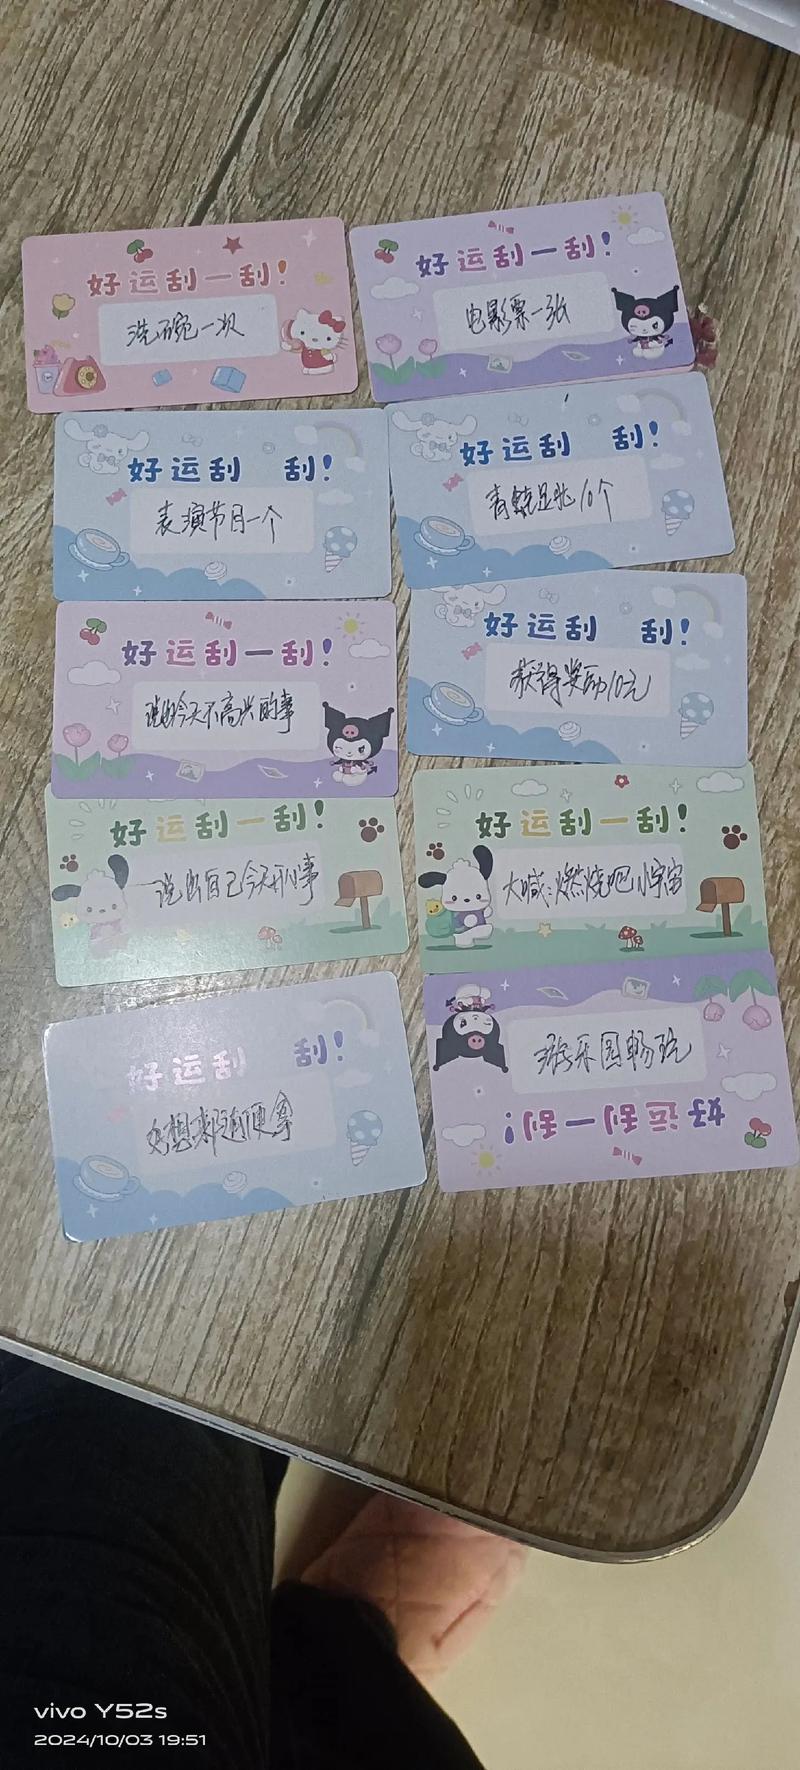 好运刮一刮!
洗碗一次
好运刮一刮!
电影票一张
好运刮 刮!
表演节目一个
好运刮 刮!
青蛙跳10个
好运刮一刮!
说出今天不高兴的事
好运刮 刮!
获得奖励10元
好运刮一刮!
说出自己今天开心事
好运刮一刮!
大喊:燃烧吧小宇宙
好运刮 刮!
好想来随便拿
游乐园畅玩
好运刮一刮!
vivo Y52s
2024/10/03 19:51